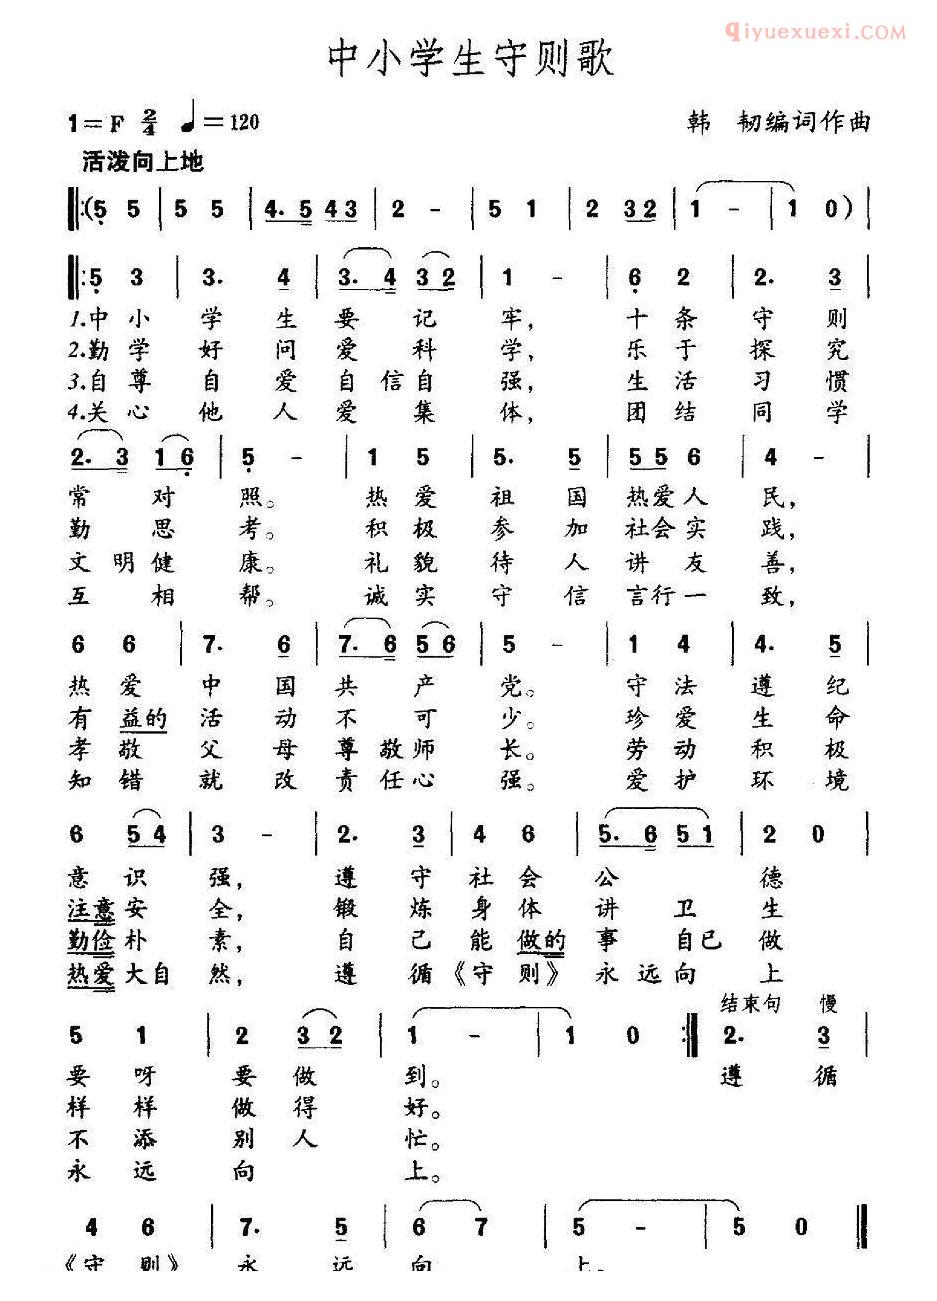 qiyuexuexi.com
中小学生守则歌
1=F 2/4 ♩=120 韩 韧编词作曲
活泼向上地
‖:(5 5 | 5 5 | 4. 5 4 3 | 2 - | 5 1 | 2 3 2 | 1 - | 1 0) |
‖:5 3 | 3. 4 | 3. 4 3 2 | 1 - | 6 2 | 2. 3 |
1.中小学生要记牢，十条守则
2.勤学好问爱科学，乐于探究
3.自尊自爱自信自强，生活习惯
4.关心他人爱集体，团结同学
2. 3 1 6 | 5 - | 1 5 | 5. 5 | 5 5 6 | 4 - |
常对照。热爱祖国热爱人民，
勤思考。积极参加社会实践，
文明健康。礼貌待人讲友善，
互相帮。诚实守信言行一致，
6 6 | 7. 6 | 7. 6 5 6 | 5 - | 1 4 | 4. 5 |
热爱中国共产党。守法遵纪
有益的活动不可少。珍爱生命
孝敬父母尊敬师长。劳动积极
知错就改责任心强。爱护环境
6 5 4 | 3 - | 2. 3 | 4 6 | 5. 6 5 1 | 2 0 |
意识强，遵守社会公德
注意安全，锻炼身体讲卫生
勤俭朴素，自己能做的事自已做
热爱大自然，遵循《守则》永远向上
结束句 慢
5 1 | 2 3 2 | 1 - | 1 0 :‖ 2. 3 |
要呀要做到。遵循
样样做得好。
不添别人忙。
永远向上。
4 6 | 7. 5 | 6 7 | 5 - | 5 - | 5 0 ‖
《守则》永远向上。